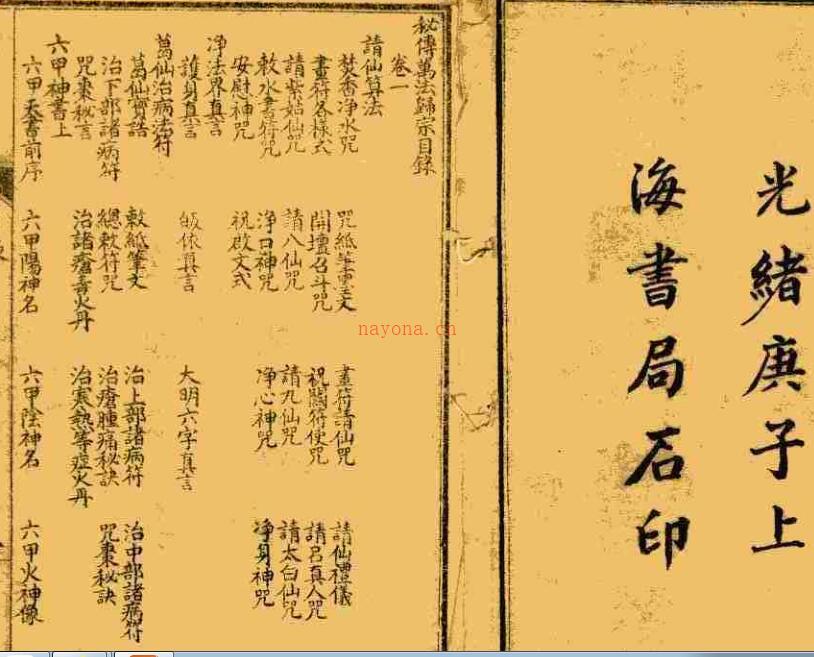 光緒庚子上
海書局石印
秘傳萬法歸宗目錄
卷一
請仙算法
焚香净水咒 咒紙筆墨文 畫符請仙咒 請仙禮儀
畫符各樣式 開壇召斗咒 祝符使咒 請呂真人咒
請紫姑仙咒 請八仙咒 請九仙咒 請太白仙咒
敕水書符咒 净口神咒 净心神咒 净身神咒
安慰神咒 祝啟文式
净法界真言
護身真言 皈依真言 大明六字真言
葛仙治病法符
葛仙寶誥 敕紙筆文 治上部諸病符 治中部諸病符
治下部諸病符 總敕符咒 治瘡腫痛秘訣 咒棗秘訣
咒棗秘言 治諸瘡毒火丹 治寒熱等症火丹
六甲神書上
六甲天書前序 六甲陽神名 六甲陰神名 六甲火神像
nayona.cn